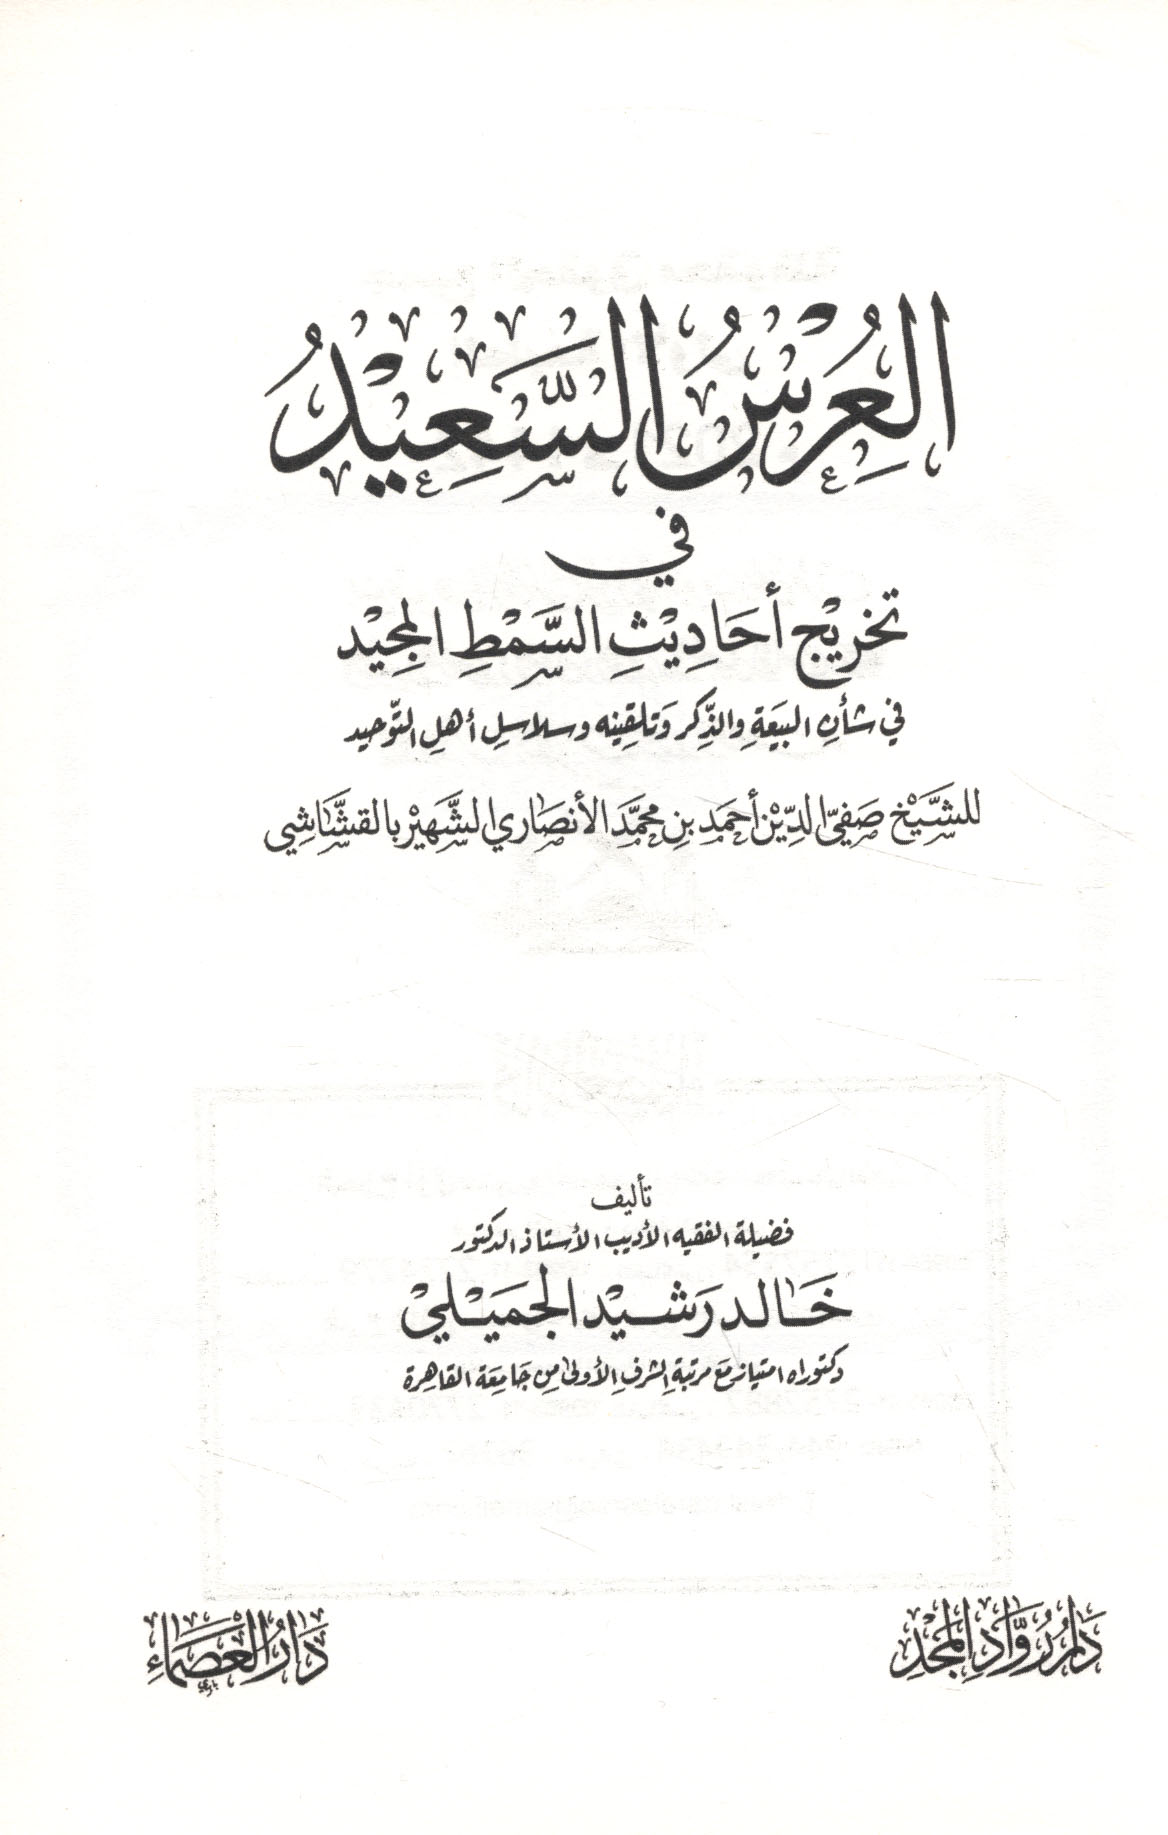 العُرْسُ السَّعِيْدُ
في
تخريْج أحَادِيْثِ السَّمْطِ المجِيْد
في شأنِ البيَعةِ والذِّكر وَتلقِينه وسلاسلِ أهلِ التوّحيد
للشَّيْخ صَفيّ الدِّيْن أحمَد بنِ محمَّد الأنصَاري الشَّهيْر بالقشَّاشِي
تأليف
فضيلة الفقيه الأديب الأستاذ الدكتور
خَالد رَشيْد الجمَيْليْ
دكتوراه امتياز مع مرتبة الشرفِ الأولى مِن جَامِعَة القاهِرة
دَارُ رُوَّادِ المَجْدِ
دَارُ العَصْمَاءِ